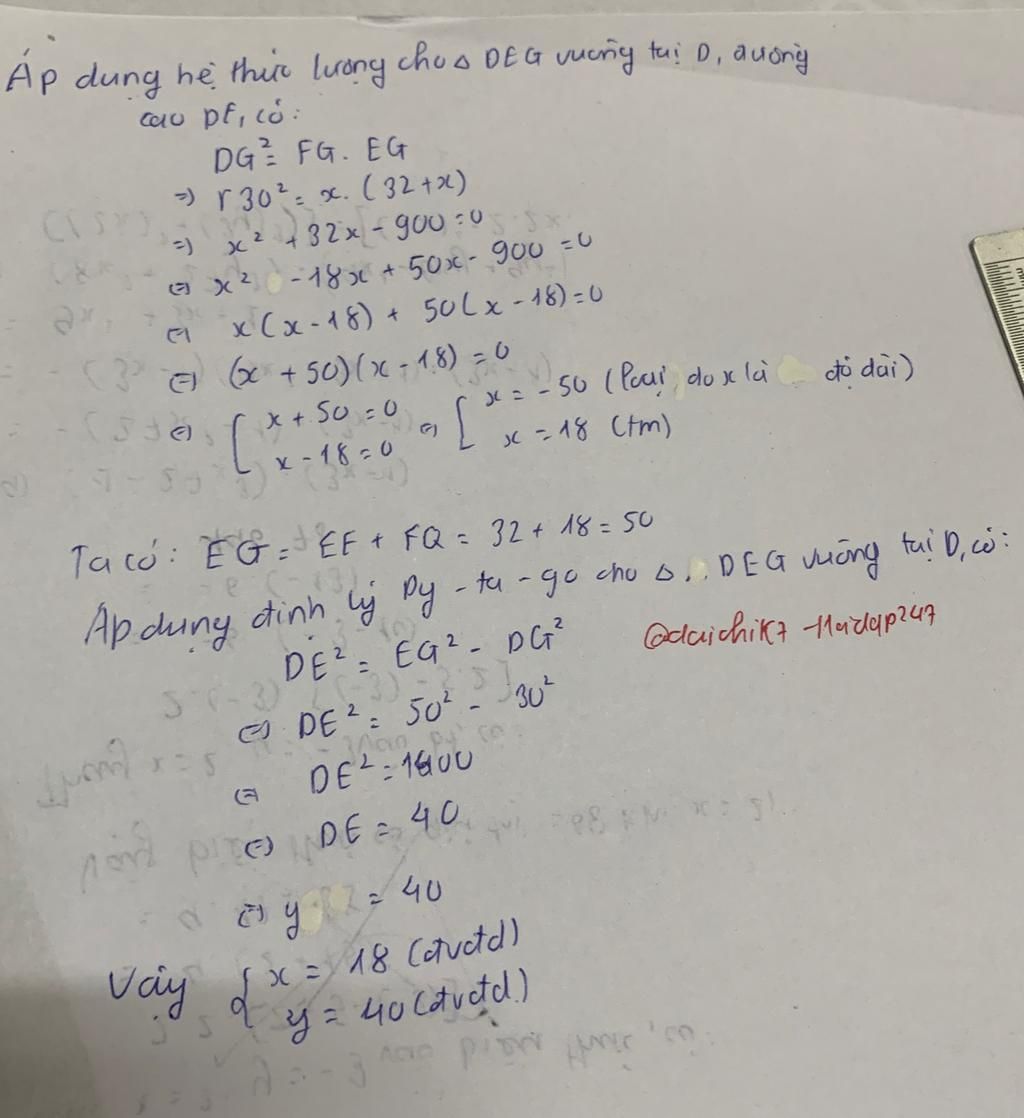 Áp dụng hệ thức lượng cho △ DEG vuông tại D, đường
cao DF, có:
DG² = FG. EG
=) 30² = x. (32+x)
=) x² + 32x - 900 = 0
(=) x² - 18x + 50x - 900 = 0
(=) x(x-18) + 50(x-18)=0
(=) (x +50)(x-18) = 0
(=) [ x + 50 = 0 (=) [ x = -50 (loại, do x là độ dài)
x - 18 = 0 x = 18 (tm)
Ta có: EG = EF + FG = 32 + 18 = 50
Áp dụng định lý Py-ta-go cho △ DEG vuông tại D, có:
DE² = EG² - DG²
@daichik7 -Hoidap247
(=) DE² = 50² - 30²
(=) DE² = 1600
(=) DE = 40
(=) y = 40
Vậy { x = 18 (đvđd)
y = 40 (đvđd)